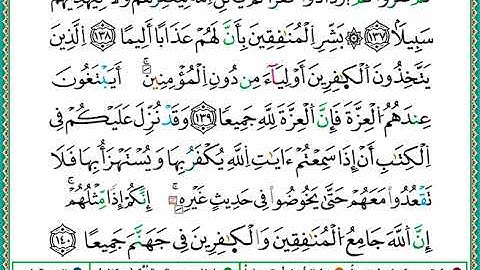 سَبِيلًا ۝١٣٧ ۞ بَشِّرِ ٱلْمُنَٰفِقِينَ بِأَنَّ لَهُمْ عَذَابًا أَلِيمًا ۝١٣٨ ٱلَّذِينَ
يَتَّخِذُونَ ٱلْكَٰفِرِينَ أَوْلِيَآءَ مِن دُونِ ٱلْمُؤْمِنِينَ ۚ أَيَبْتَغُونَ
عِندَهُمُ ٱلْعِزَّةَ فَإِنَّ ٱلْعِزَّةَ لِلَّهِ جَمِيعًا ۝١٣٩ وَقَدْ نُزِّلَ عَلَيْكُمْ فِى
ٱلْكِتَٰبِ أَنْ إِذَا سَمِعْتُمْ ءَايَٰتِ ٱللَّهِ يُكْفَرُ بِهَا وَيُسْتَهْزَأُ بِهَا فَلَا
نَقْعُدُوا۟ مَعَهُمْ حَتَّىٰ يَخُوضُوا۟ فِى حَدِيثٍ غَيْرِهِۦٓ ۚ إِنَّكُمْ إِذًا مِّثْلُهُمْ ۗ
إِنَّ ٱللَّهَ جَامِعُ ٱلْمُنَٰفِقِينَ وَٱلْكَٰفِرِينَ فِى جَهَنَّمَ جَمِيعًا ۝١٤٠